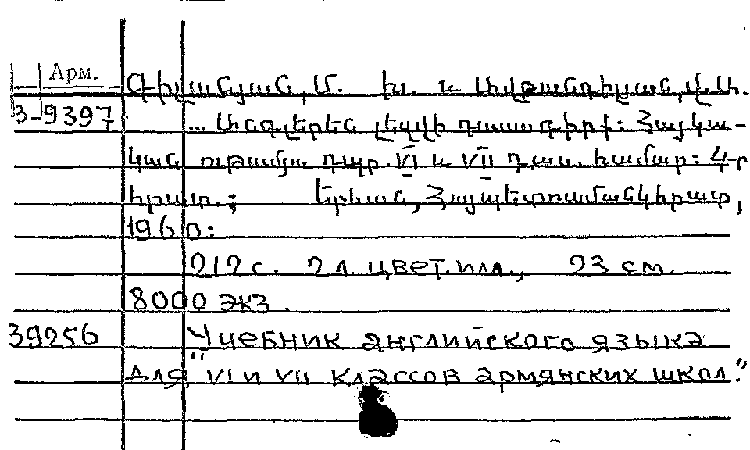 Арм.
Գիլանյան, Մ. Խ. և
3-9397
... Անգլերեն լեզվի դասագիրք: Հայկա-
կան ութամյա դպր. VI և VII դաս. համար: 4-րդ
հրատ.; Երևան, Հայպետուսմանկհրատ,
1960:
212 с. 2 л. цвет. илл., 23 см.
8000 экз.
39256
Учебник английского языка
для "VI и VII классов армянских школ."